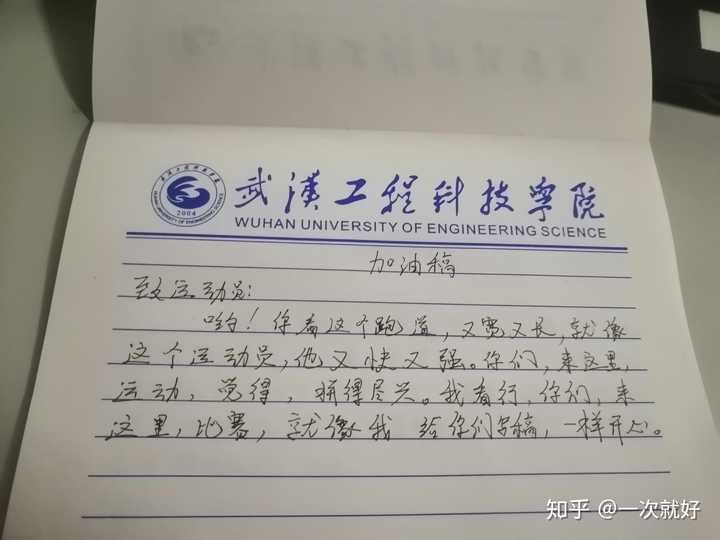 武汉工程科技学院
WUHAN UNIVERSITY OF ENGINEERING SCIENCE
2004
加油稿
致运动员：
哟！你看这个跑道，又宽又长，就像
这个运动员，他又快又强。你们，来这里，
运动，觉得，拼得尽兴。我看行，你们，来
这里，比赛，就像我 给你们写稿，一样开心。
知乎 @一次就好